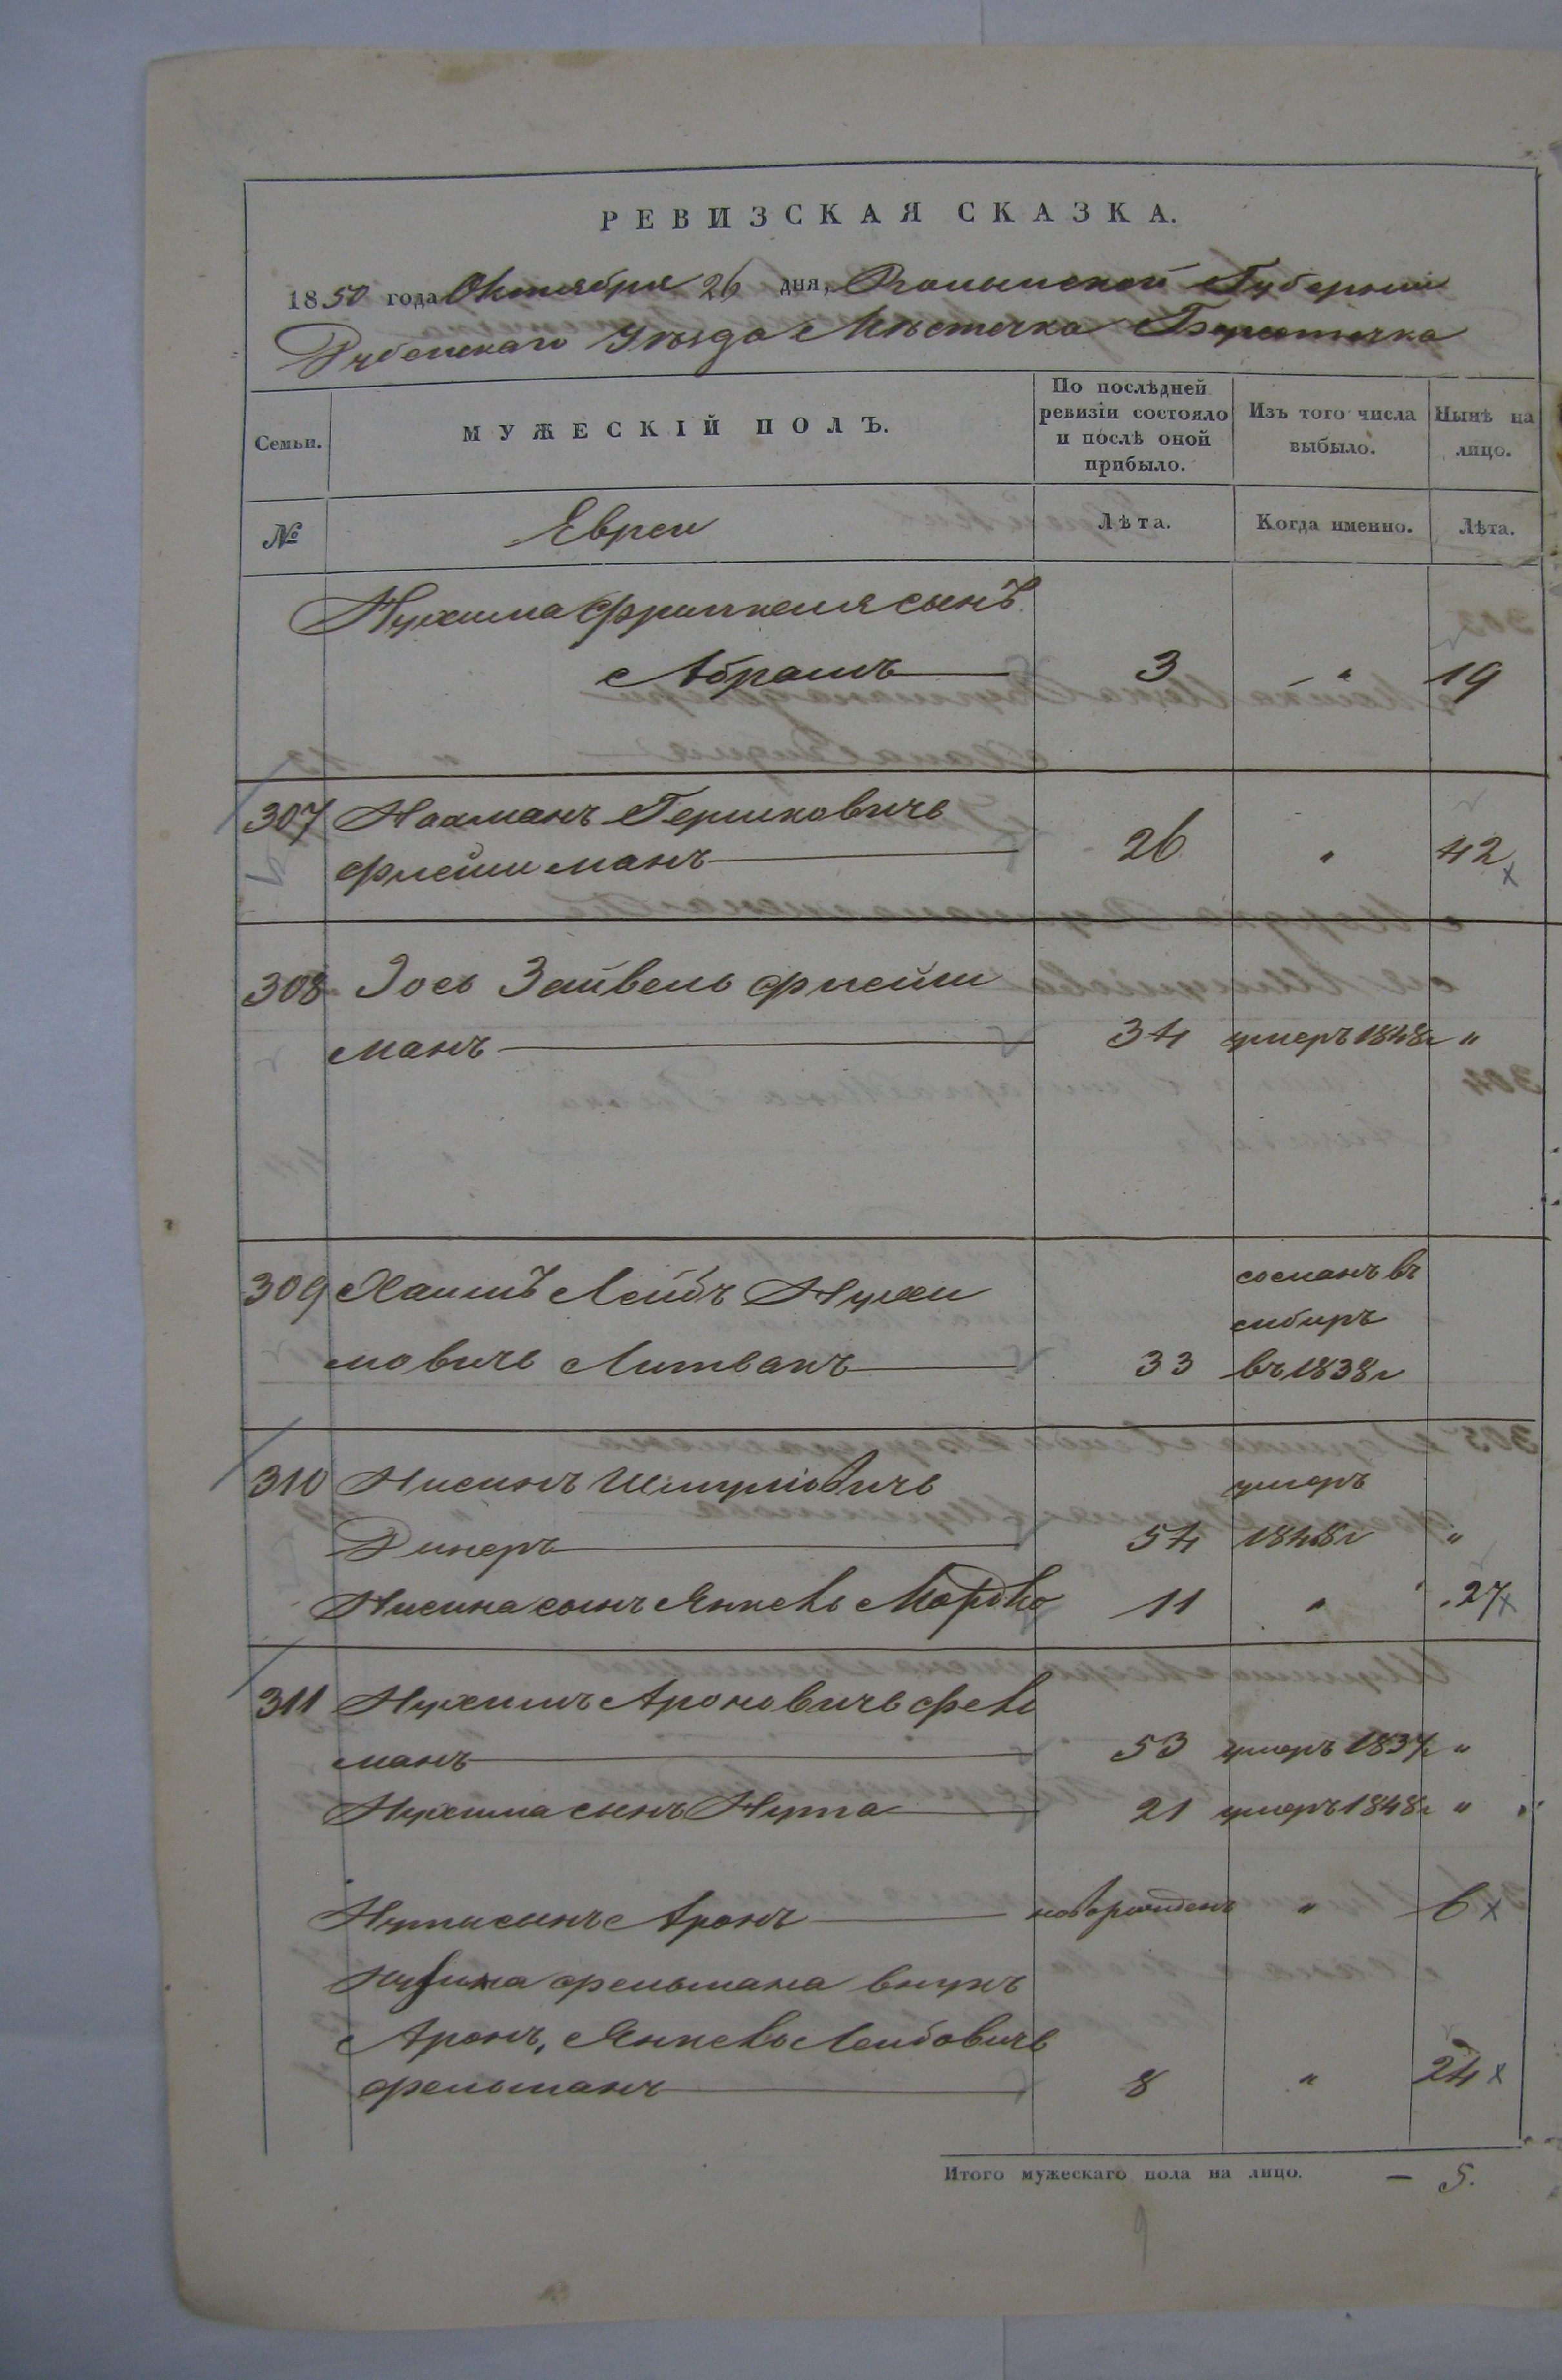 РЕВИЗСКАЯ СКАЗКА.
1850 года Октября 26 дня, Волынской Губернии
Дубенскаго Уѣзда Мѣстечка Берестечка
Семьи.
МУЖЕСКІЙ ПОЛЪ.
По послѣдней ревизіи состояло и послѣ оной прибыло.
Изъ того числа выбыло.
Нынѣ на лицо.
№ Евреи Лѣта. Когда именно. Лѣта.
Нухима сынъ
Абрамъ 3 " 19
307 Нахманъ Гершковичь
Флейшманъ 26 " 42
308 Іось Зайвель Флейш
манъ 34 умеръ 1848г "
309 Хаимъ Лейбъ Нухи
мовичь Литвакъ 33 сосланъ въ сибирь въ 1838г
310 Нисинъ Шмулiовичь
Динеръ 54 умеръ 1848г "
Нисина сынъ Янкель Мордко 11 " 27
311 Нухимъ Ароновичь Фель
манъ 53 умеръ 1837г "
Нухима сынъ Нута 21 умеръ 1848г "
Нуты сынъ Аронъ новорожденъ " 6
Нухима Фельмана внукъ
Аронъ, Янкель Лейбовичь
Фельманъ 8 " 24
Итого мужескаго пола на лицо. — 5.